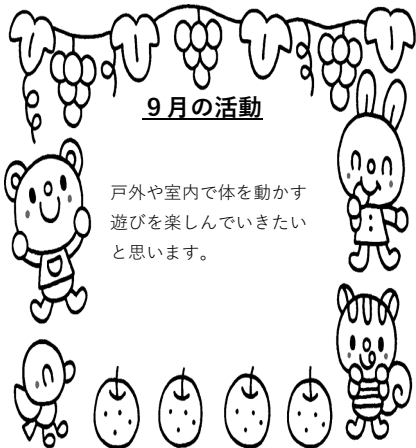 ９月の活動
戸外や室内で体を動かす
遊びを楽しんでいきたい
と思います。